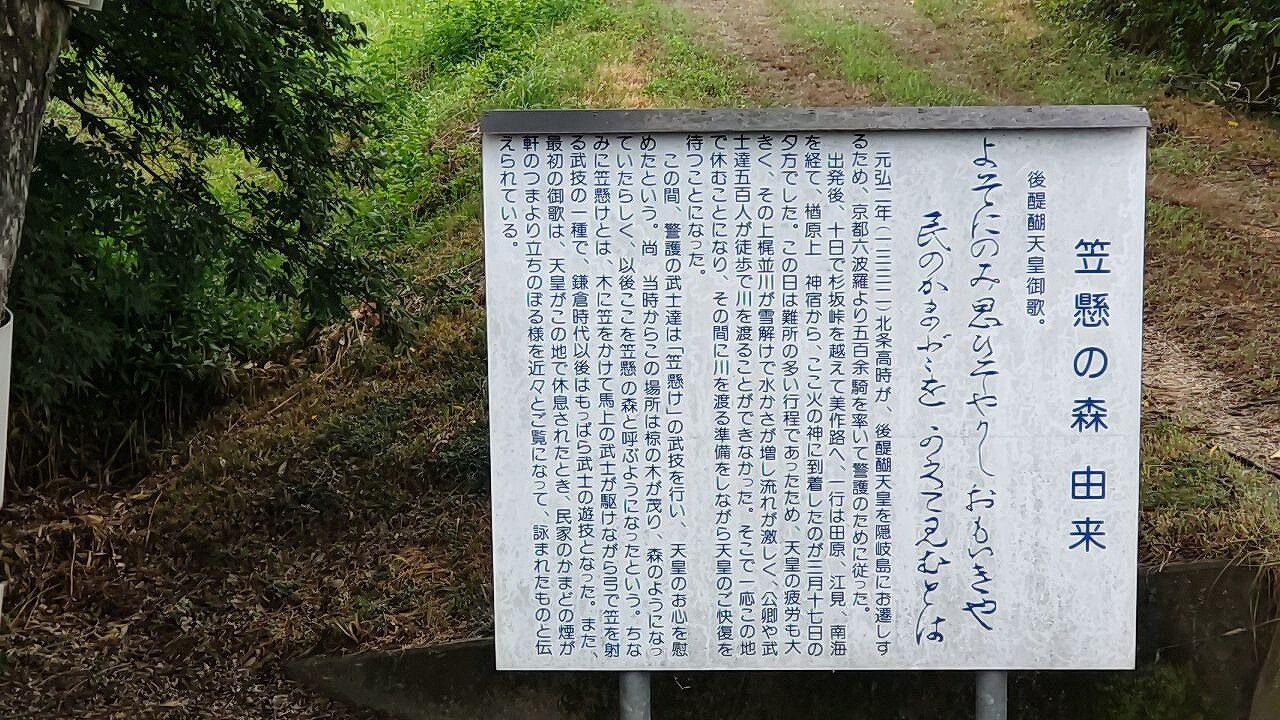 笠懸の森 由来
後醍醐天皇御歌。
よそにのみ思ひそやりしおもいきや
民のかまどをかくて見むとは
元弘二年(一三三二)北条高時が、後醍醐天皇を隠岐島にお遷しす
るため、京都六波羅より五百余騎を率いて警護のために従った。
出発後、十日で杉坂峠を越えて美作路へ、一行は田原、江見、南海
を経て、楢原上 神宿から、ここ火の神に到着したのが三月十七日の
夕方でした。この日は難所の多い行程であったため、天皇の疲労も大
きく、その上梶並川が雪解けで水かさが増し流れが激しく、公卿や武
士達五百人が徒歩で川を渡ることができなかった。そこで一応この地
で休むことになり、その間に川を渡る準備をしながら天皇のご快復を
待つことになった。
この間、警護の武士達は「笠懸け」の武技を行い、天皇のお心を慰
めたという。尚 当時からこの場所は椋の木が茂り、森のようになっ
ていたらしく、以後ここを笠懸の森と呼ぶようになったという。ちな
みに笠懸けとは、木に笠をかけて馬上の武士が駆けながら弓で笠を射
る武技の一種で、鎌倉時代以後はもっぱら武士の遊技となった。また、
最初の御歌は、天皇がこの地で休息されたとき、民家のかまどの煙が
軒のつまより立ちのぼる様を近々とご覧になって、詠まれたものと伝
えられている。